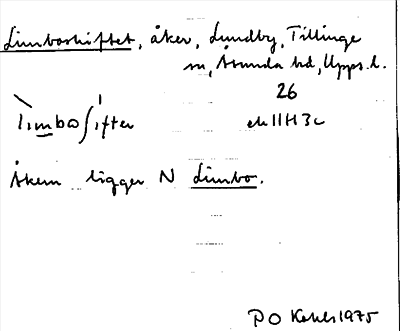 Limboskiftet, åker, Lundby, Tillinge
sn, Åsunda hd, Upps. l.
26
ek 11H 3c
Åkern ligger N Limbo.
P O 1975